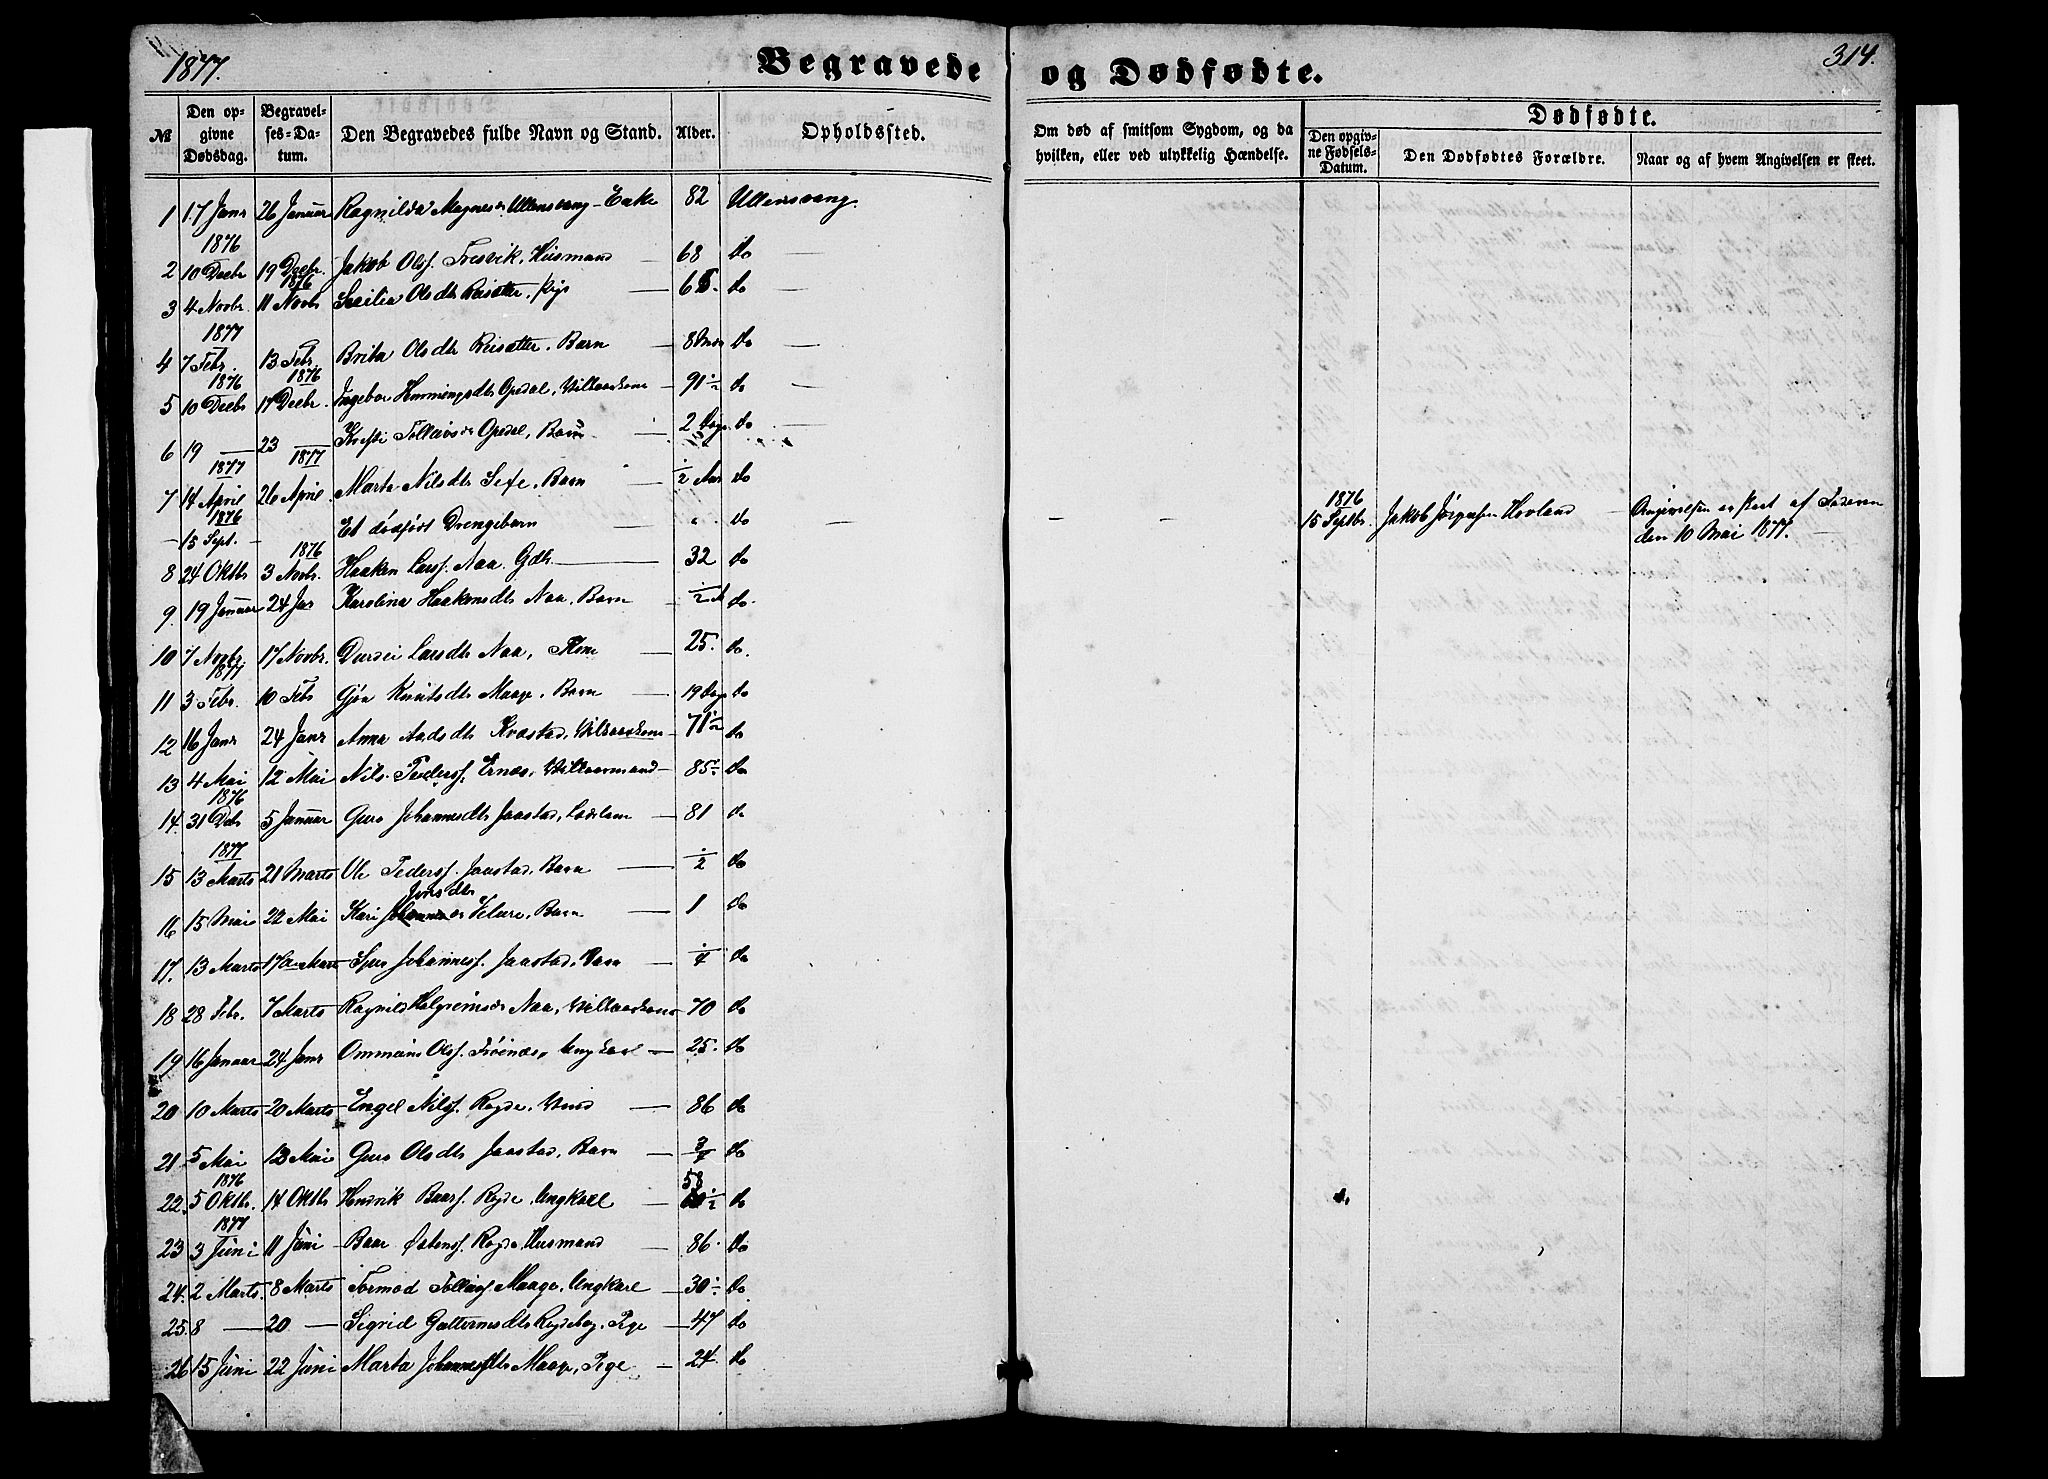 1877.
Begravede og Dødfødte.
314.
№
Den opgivne Dødsdag.
Begravelses-Datum.
Den Begravedes fulde Navn og Stand.
Alder.
Opholdssted.
Om død af smitsom Sygdom, og da hvilken, eller ved ulykkelig Hændelse.
Dødfødte.
Den opgivne Fødsels-Datum.
Den Dødfødtes Forældre.
Naar og af hvem Angivelsen er skeet.
1 17 Janr 26 Januar Ragnilda Magnesdr Ullensvang - Enke 82 Ullensvang.
1876
2 10 Decbr 19 Decbr. Jakob Olsf. Tresvik, Husmand — 68 do —
1876
3 4 Novbr. 11 Novbr Sesilia Olsdtr Reisæter. Pige — 65. do —
1877
4 7 Febr. 13 Febr. Brita Olsdtr Reisæter. Barn — 8 Mdr do —
1876 1876
5 10 Decbr 17 Decbr. Ingebor Hemmingsdtr Opedal, Vilkaarskone — 91 ½ do —
6 19 — 23 — Tolleivsdr Opedal, Barn — 2 Dage do —
1877 1877
7 14 April 26 April Marta Nilsdtr Sexe, Barn — ½ Aar do
1876
— 15 Sept. — Et dødfødt Drengebarn — " do — —
1876
15 Septbr. Jakob Jørgensen Hovland — Angivelsen er skeet af Faderen
den 10 Mai 1877. —
1876
8 24 Oktbr 3 Novbr. Haaken Larsf. Naa. Gdbr. — 32 do
9. 19 Januar 24 Jar Karolina Haakensdtr Naa, Barn — ½ A do.
10 7 Novbr. 17 Novbr. Durdei Larsdtr Naa, Kone 25. do.
1877
11 3 Febr. 10 Febr Gjøa Knutsdtr Maage, Barn — 19 Dage do
12 16 Janr 24 Janr Anna Aadsdtr Kvæstad, Vilkaarskone — 71 ½ do
13 4 Mai 12 Mai Nils Pedersf. Ernæs, Vilkaarsmand — 85 ½ do
1876
14. 31 Decbr 5 Januar Guro Johannesdtr Jaastad, — 81 do
1877
15 13 Marts 21 Marts Ole Pedersf. Jaastad, Barn — ½ do
Jonsdtr
16 15 Mai 22 Mai Kari Velure, Barn — 1 do
17. 13 Marts 17de Marts Sjur Johannesf. Jaastad, Barn — ¼ do
18 28 Febr. 7 Marts Ragnild Helgreimsdr Naa, Vilkaarskone 70 do
19 16 Januar 24 Janr Ommund Olsf. Frøinæs, Ungkarl — 25. do
20 10 Marts 20 Marts Engel Nilsf. Rogde, — 86 do
21 5 Mai 13 Mai Guro Olsdtr Jaastad, Barn — ¾ do
1876 58
22. 5 Oktbr. 14 Oktbr Hendrik Baarsf. Rogde, Ungkarl — ½ do
1877
23 3 Juni 11 Juni Baar Østensf. Rogde, Husmand — 86. do
24. 2 Marts. 8 Marts Tormod Tolleivsf. Maage, Ungkarl — 30 ½ do
25. 8 — 20 — Sigrid Guttormsdtr Rogdehag, Pige — 47 do
26 15 Juni 22 Juni Marta Johannesdtr Maage, Pige — 24. do